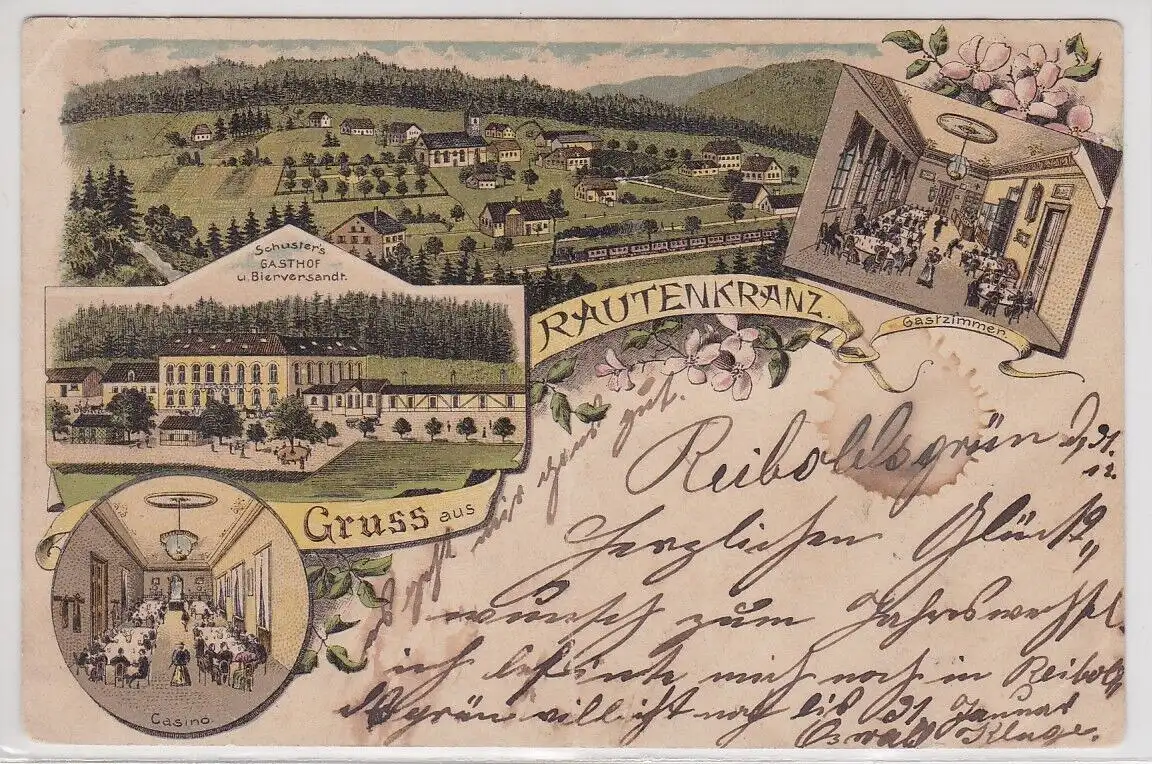 Schuster's
GASTHOF
u. Bierversandt.
Gruss aus
RAUTENKRANZ.
Gastzimmer
Casino.
Reiboldsgrün d. 31.
12.
Herzlichen Glück„
wunsch zum Jahreswechsel
ich befinte mich noch in Reibolds
grün villicht noch bis 31 Januar
Oswald Kluge.
es geht mir ganz gut.